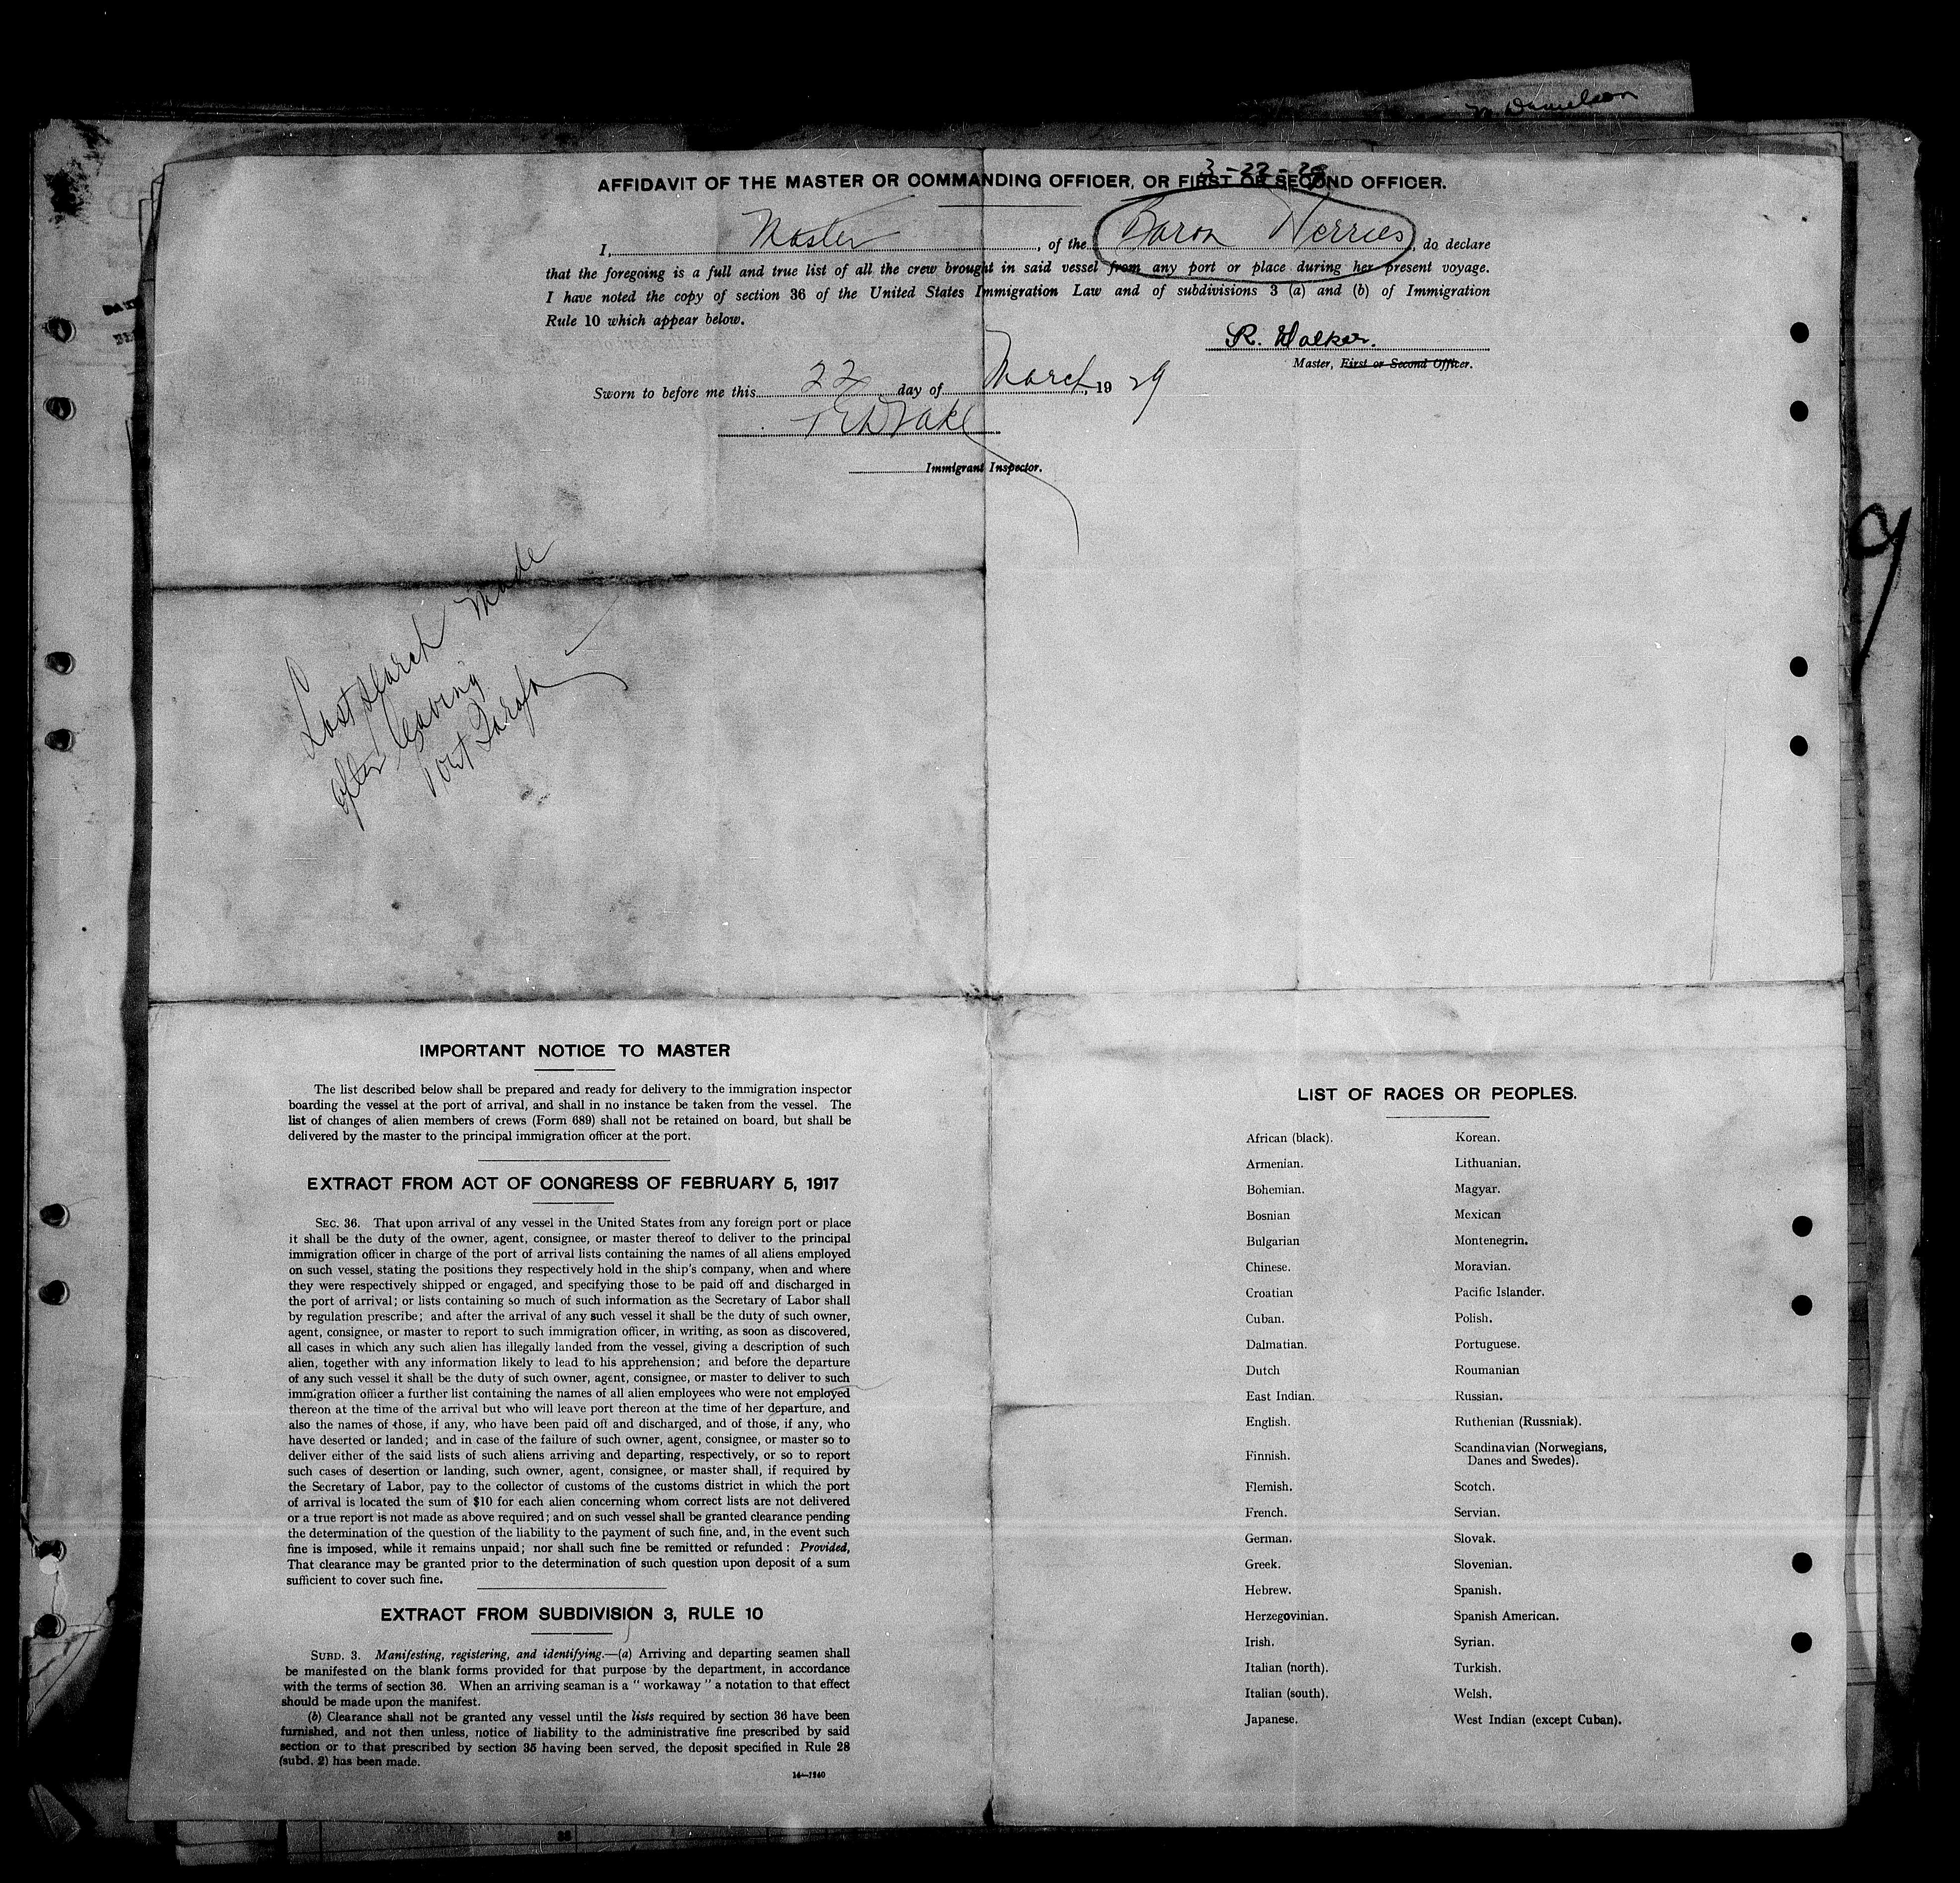 Danielson
3-22-29
AFFIDAVIT OF THE MASTER OR COMMANDING OFFICER, OR FIRST OR SECOND OFFICER.
I, Master, of the Baron Herries, do declare
that the foregoing is a full and true list of all the crew brought in said vessel from any port or place during her present voyage.
I have noted the copy of section 36 of the United States Immigration Law and of subdivisions 3 (a) and (b) of Immigration
Rule 10 which appear below.
R. Walker.
Master, First or Second Officer.
Sworn to before me this 22 day of March, 19 29
Drake
Immigrant Inspector.
9
Last search made
after leaving
Port Tarafa
IMPORTANT NOTICE TO MASTER
The list described below shall be prepared and ready for delivery to the immigration inspector
boarding the vessel at the port of arrival, and shall in no instance be taken from the vessel. The
list of changes of alien members of crews (Form 689) shall not be retained on board, but shall be
delivered by the master to the principal immigration officer at the port.
EXTRACT FROM ACT OF CONGRESS OF FEBRUARY 5, 1917
SEC. 36. That upon arrival of any vessel in the United States from any foreign port or place
it shall be the duty of the owner, agent, consignee, or master thereof to deliver to the principal
immigration officer in charge of the port of arrival lists containing the names of all aliens employed
on such vessel, stating the positions they respectively hold in the ship's company, when and where
they were respectively shipped or engaged, and specifying those to be paid off and discharged in
the port of arrival; or lists containing so much of such information as the Secretary of Labor shall
by regulation prescribe; and after the arrival of any such vessel it shall be the duty of such owner,
agent, consignee, or master to report to such immigration officer, in writing, as soon as discovered,
all cases in which any such alien has illegally landed from the vessel, giving a description of such
alien, together with any information likely to lead to his apprehension; and before the departure
of any such vessel it shall be the duty of such owner, agent, consignee, or master to deliver to such
immigration officer a further list containing the names of all alien employees who were not employed
thereon at the time of the arrival but who will leave port thereon at the time of her departure, and
also the names of those, if any, who have been paid off and discharged, and of those, if any, who
have deserted or landed; and in case of the failure of such owner, agent, consignee, or master so to
deliver either of the said lists of such aliens arriving and departing, respectively, or so to report
such cases of desertion or landing, such owner, agent, consignee, or master shall, if required by
the Secretary of Labor, pay to the collector of customs of the customs district in which the port
of arrival is located the sum of $10 for each alien concerning whom correct lists are not delivered
or a true report is not made as above required; and on such vessel shall be granted clearance pending
the determination of the question of the liability to the payment of such fine, and, in the event such
fine is imposed, while it remains unpaid; nor shall such fine be remitted or refunded: Provided,
That clearance may be granted prior to the determination of such question upon deposit of a sum
sufficient to cover such fine.
EXTRACT FROM SUBDIVISION 3, RULE 10
SUBD. 3. Manifesting, registering, and identifying.—(a) Arriving and departing seamen shall
be manifested on the blank forms provided for that purpose by the department, in accordance
with the terms of section 36. When an arriving seaman is a "workaway" a notation to that effect
should be made upon the manifest.
(b) Clearance shall not be granted any vessel until the lists required by section 36 have been
furnished, and not then unless, notice of liability to the administrative fine prescribed by said
section or to that prescribed by section 35 having been served, the deposit specified in Rule 28
(subd. 2) has been made.
14—1240
LIST OF RACES OR PEOPLES.
African (black). Korean.
Armenian. Lithuanian.
Bohemian. Magyar.
Bosnian Mexican
Bulgarian Montenegrin.
Chinese. Moravian.
Croatian Pacific Islander.
Cuban. Polish.
Dalmatian. Portuguese.
Dutch Roumanian
East Indian. Russian.
English. Ruthenian (Russniak).
Finnish. Scandinavian (Norwegians,
Danes and Swedes).
Flemish. Scotch.
French. Servian.
German. Slovak.
Greek. Slovenian.
Hebrew. Spanish.
Herzegovinian. Spanish American.
Irish. Syrian.
Italian (north). Turkish.
Italian (south). Welsh.
Japanese. West Indian (except Cuban).